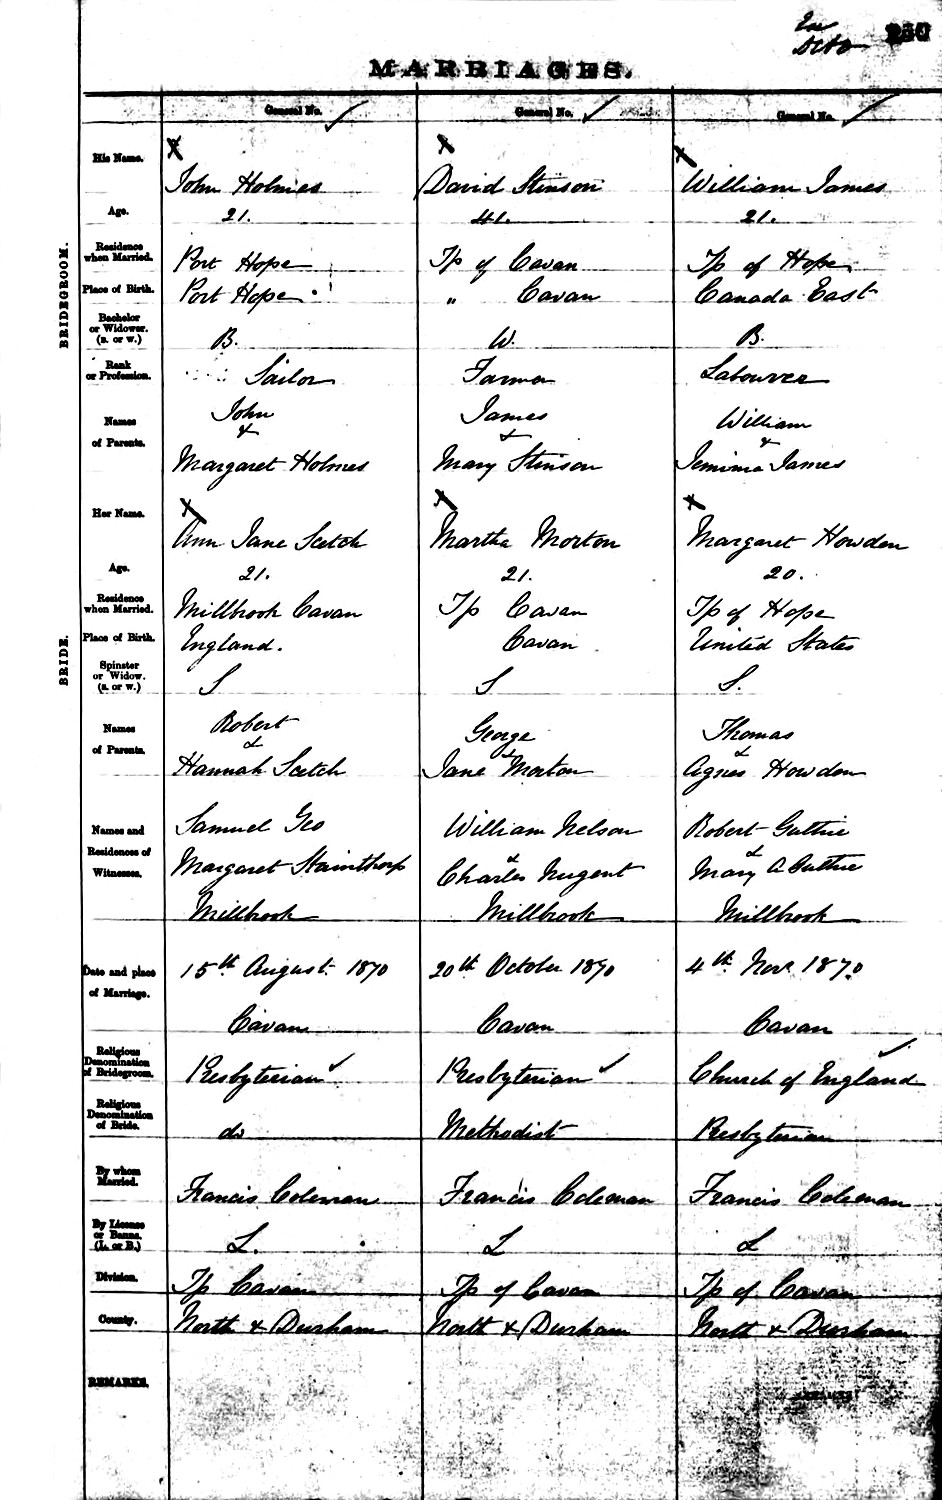 250
MARRIAGES.
General No. General No. General No.
BRIDEGROOM.
His Name. John Holmes David Stinson William James
Age. 21. 41. 21.
Residence when Married. Port Hope Tp of Cavan Tp of Hope
Place of Birth. Port Hope " Cavan Canada East
Bachelor or Widower. (B. or W.) B. W. B.
Rank or Profession. Sailor Farmer Labourer
Names John James William
& & &
of Parents. Margaret Holmes Mary Stinson Jemima James
BRIDE.
Her Name. Ann Jane Scetch Martha Morton Margaret Howden
Age. 21. 21. 20.
Residence when Married. Millbrook Cavan Tp Cavan Tp of Hope
Place of Birth. England. Cavan United States
Spinster or Widow. (S. or W.) S S S.
Names Robert George Thomas
& & &
of Parents. Hannah Scetch Jane Morton Agnes Howden
Names and Samuel Geo William Nelson Robert Guthrie
& &
Residences of Margaret Stainthorp Charles Nugent Mary A Guthrie
Witnesses. Millbrook Millbrook Millbrook
Date and place 15th August 1870 20th October 1870 4th Nov 1870
of Marriage. Cavan Cavan Cavan
Religious Denomination of Bridegroom. Presbyterian Presbyterian Church of England
Religious Denomination of Bride. do Methodist Presbyterian
By whom Married. Francis Coleman Francis Coleman Francis Coleman
By License or Banns. (L. or B.) L. L L
Division. Tp Cavan Tp of Cavan Tp of Cavan
County. North & Durham North & Durham North & Durham
REMARKS.